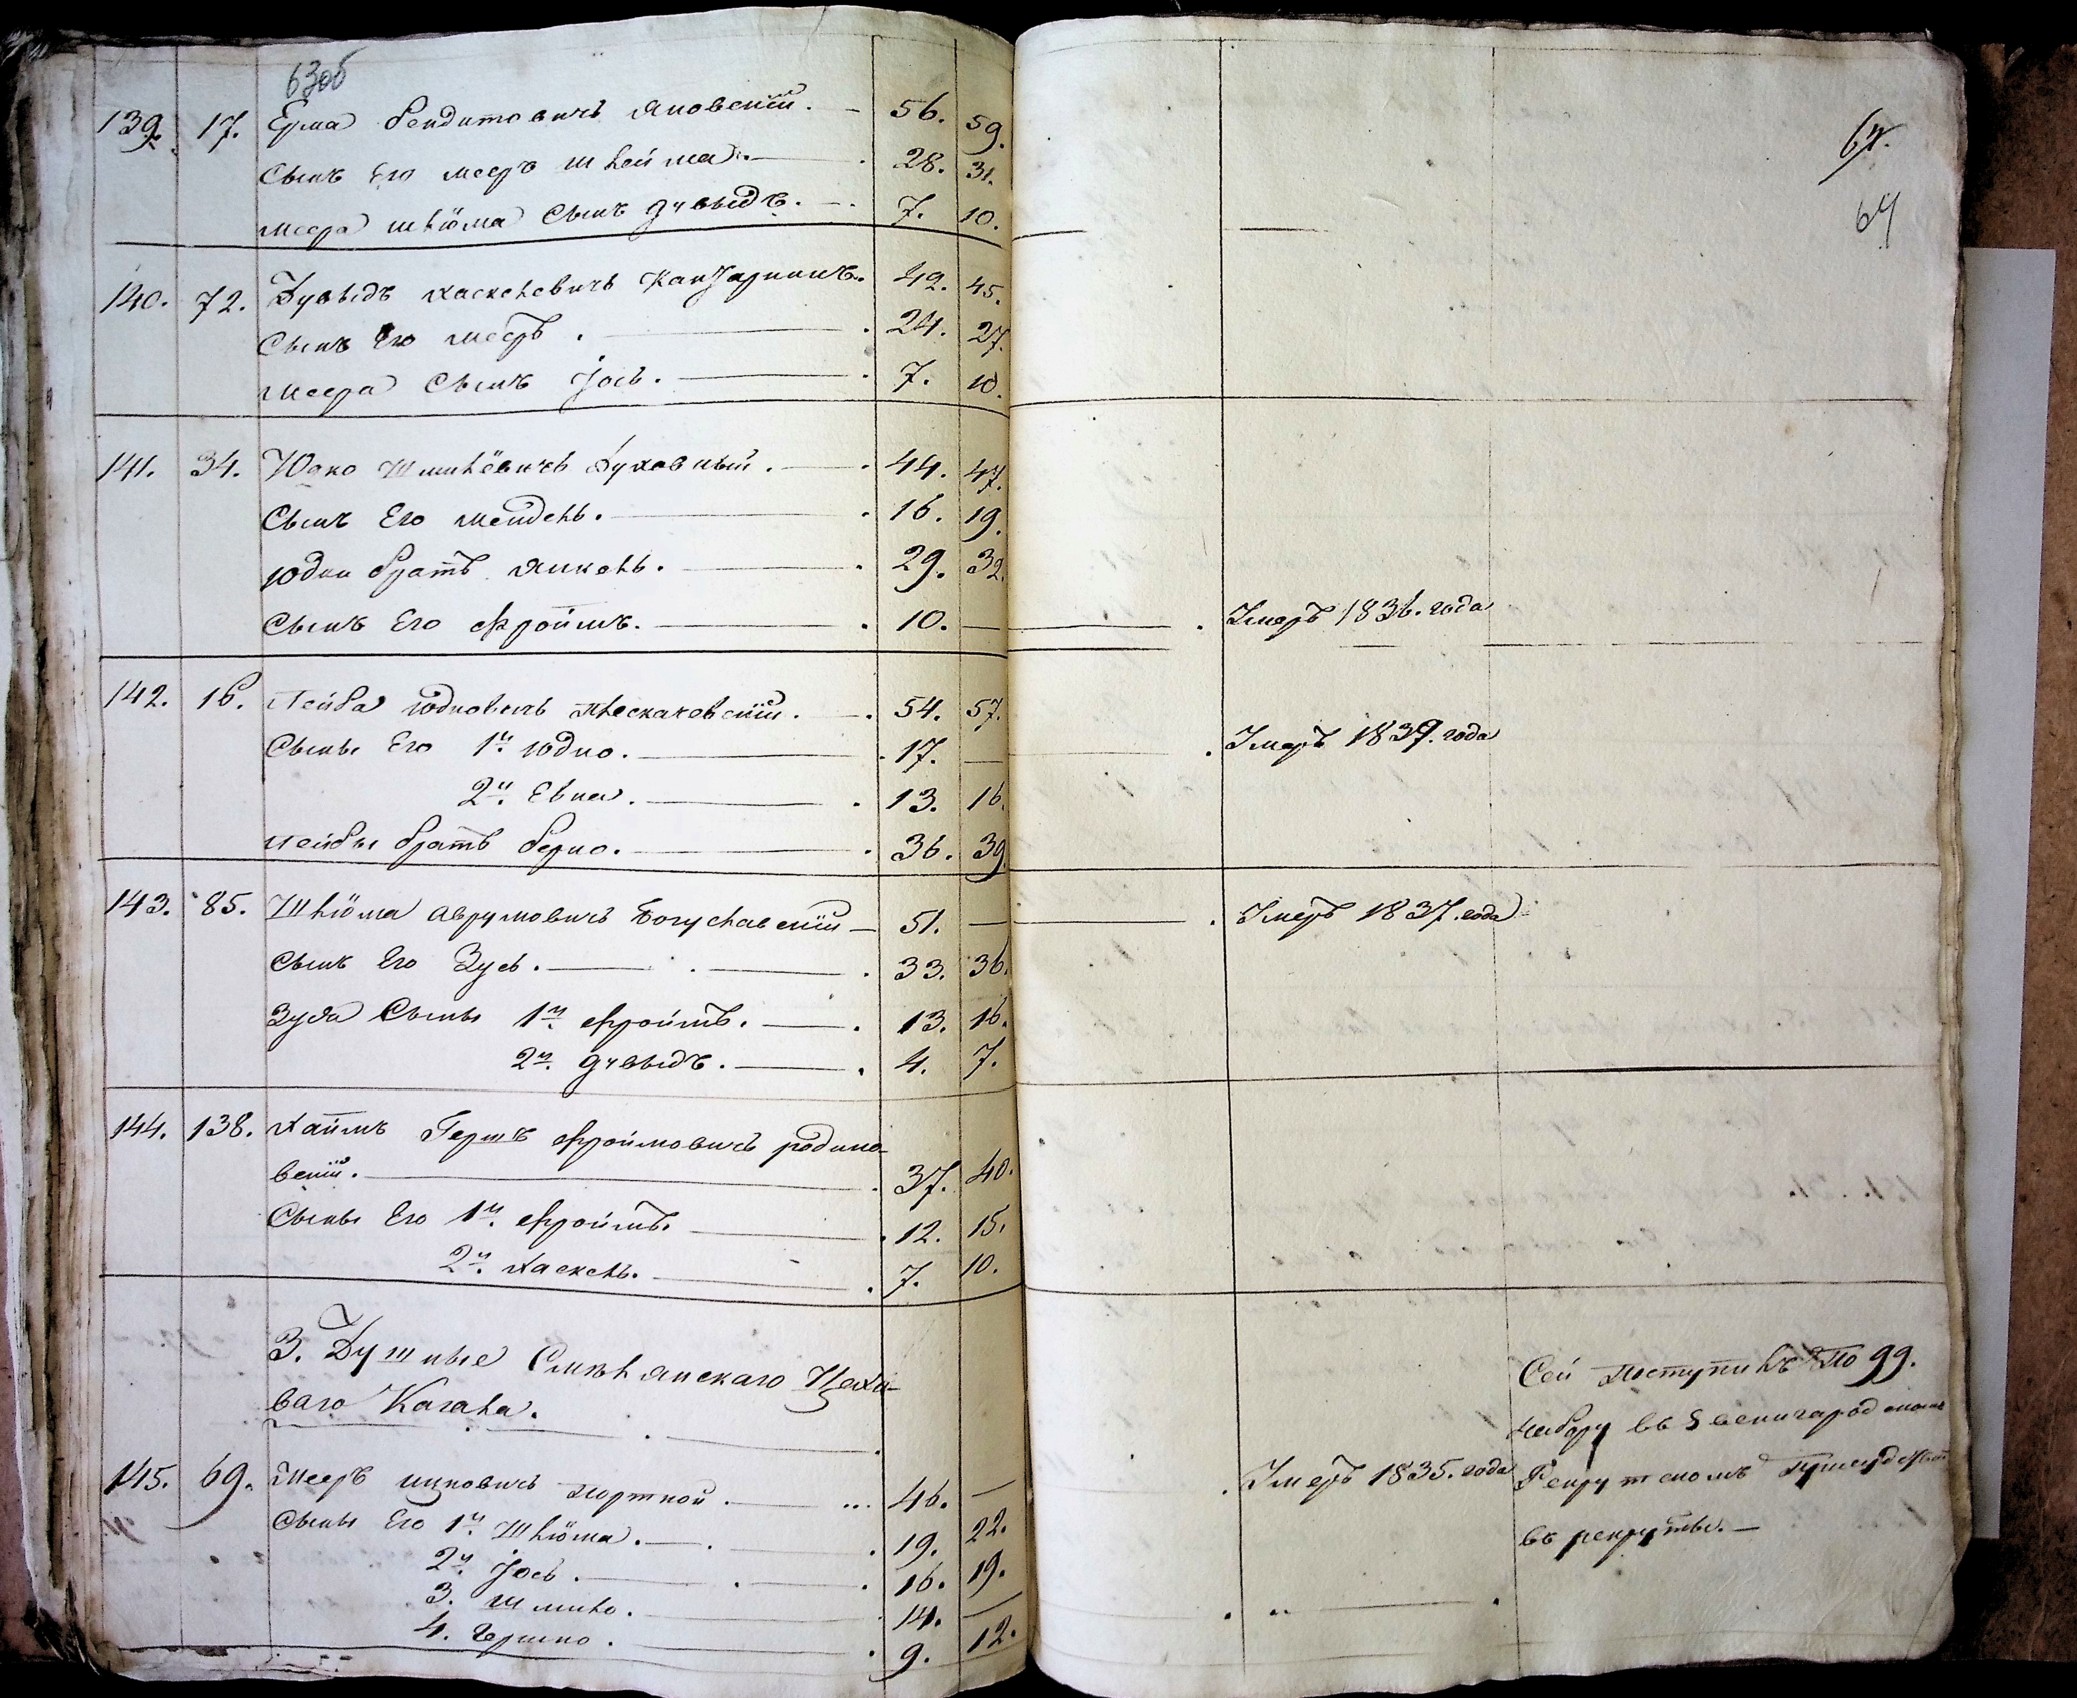 63об
139. 17. Ерма Бендитовичъ Яновскій. 56. 59.
Сынъ Его Мееръ Шлёйма. 28. 31.
Меера Шлiома Сынъ Дувыдъ. 7. 10.
140. 72. Дувыдъ Хаскелевичъ 42. 45.
Сынъ Его Мееръ. 24. 27.
Меера Сынъ Іось. 7. 10.
141. 34. Юдко Шмилёвичъ Духовный. 44. 47.
Сынъ Его Мендель. 16. 19.
Юдки братъ Янкель. 29. 32.
Сынъ Его Фроимъ. 10. —
142. 16. Лейба Юдковичъ Плескачевскій. 54. 57.
Сыны Его 1й. Юдко. 17. —
2й. Евна. 13. 16.
Лейбы братъ Берко. 36. 39.
143. 85. Шліома Аврумовичъ Богуславскій 51. —
Сынъ Его Зусь. 33. 36.
Зуся Сыны 1й Фроимъ. 13. 16.
2й. Дувыдъ. 4. 7.
144. 138. Хаимъ Гершъ Фроимовичъ Родино-
вскій. 37. 40.
Сыны Его 1й. Фроимъ. 12. 15.
2й. Хаскель. 7. 10.
3. Душные Смѣлянскаго Цехо-
ваго Кагала.
145. 69. Мееръ Ицковичъ Портной. 46. —
Сыны Его 1й. Шліома. 19. 22.
2й. Іось. 16. 19.
3. Шмило. 14. —
4. Гершко. 9. 12.
64.
64
Умеръ 1836. года
Умеръ 1839. года
Умеръ 1837. года
Умеръ 1835. года
Сей поступилъ по 99.
набору въ Звенигородскомъ
Рекрутскомъ Присудствіи
въ рекруты. —